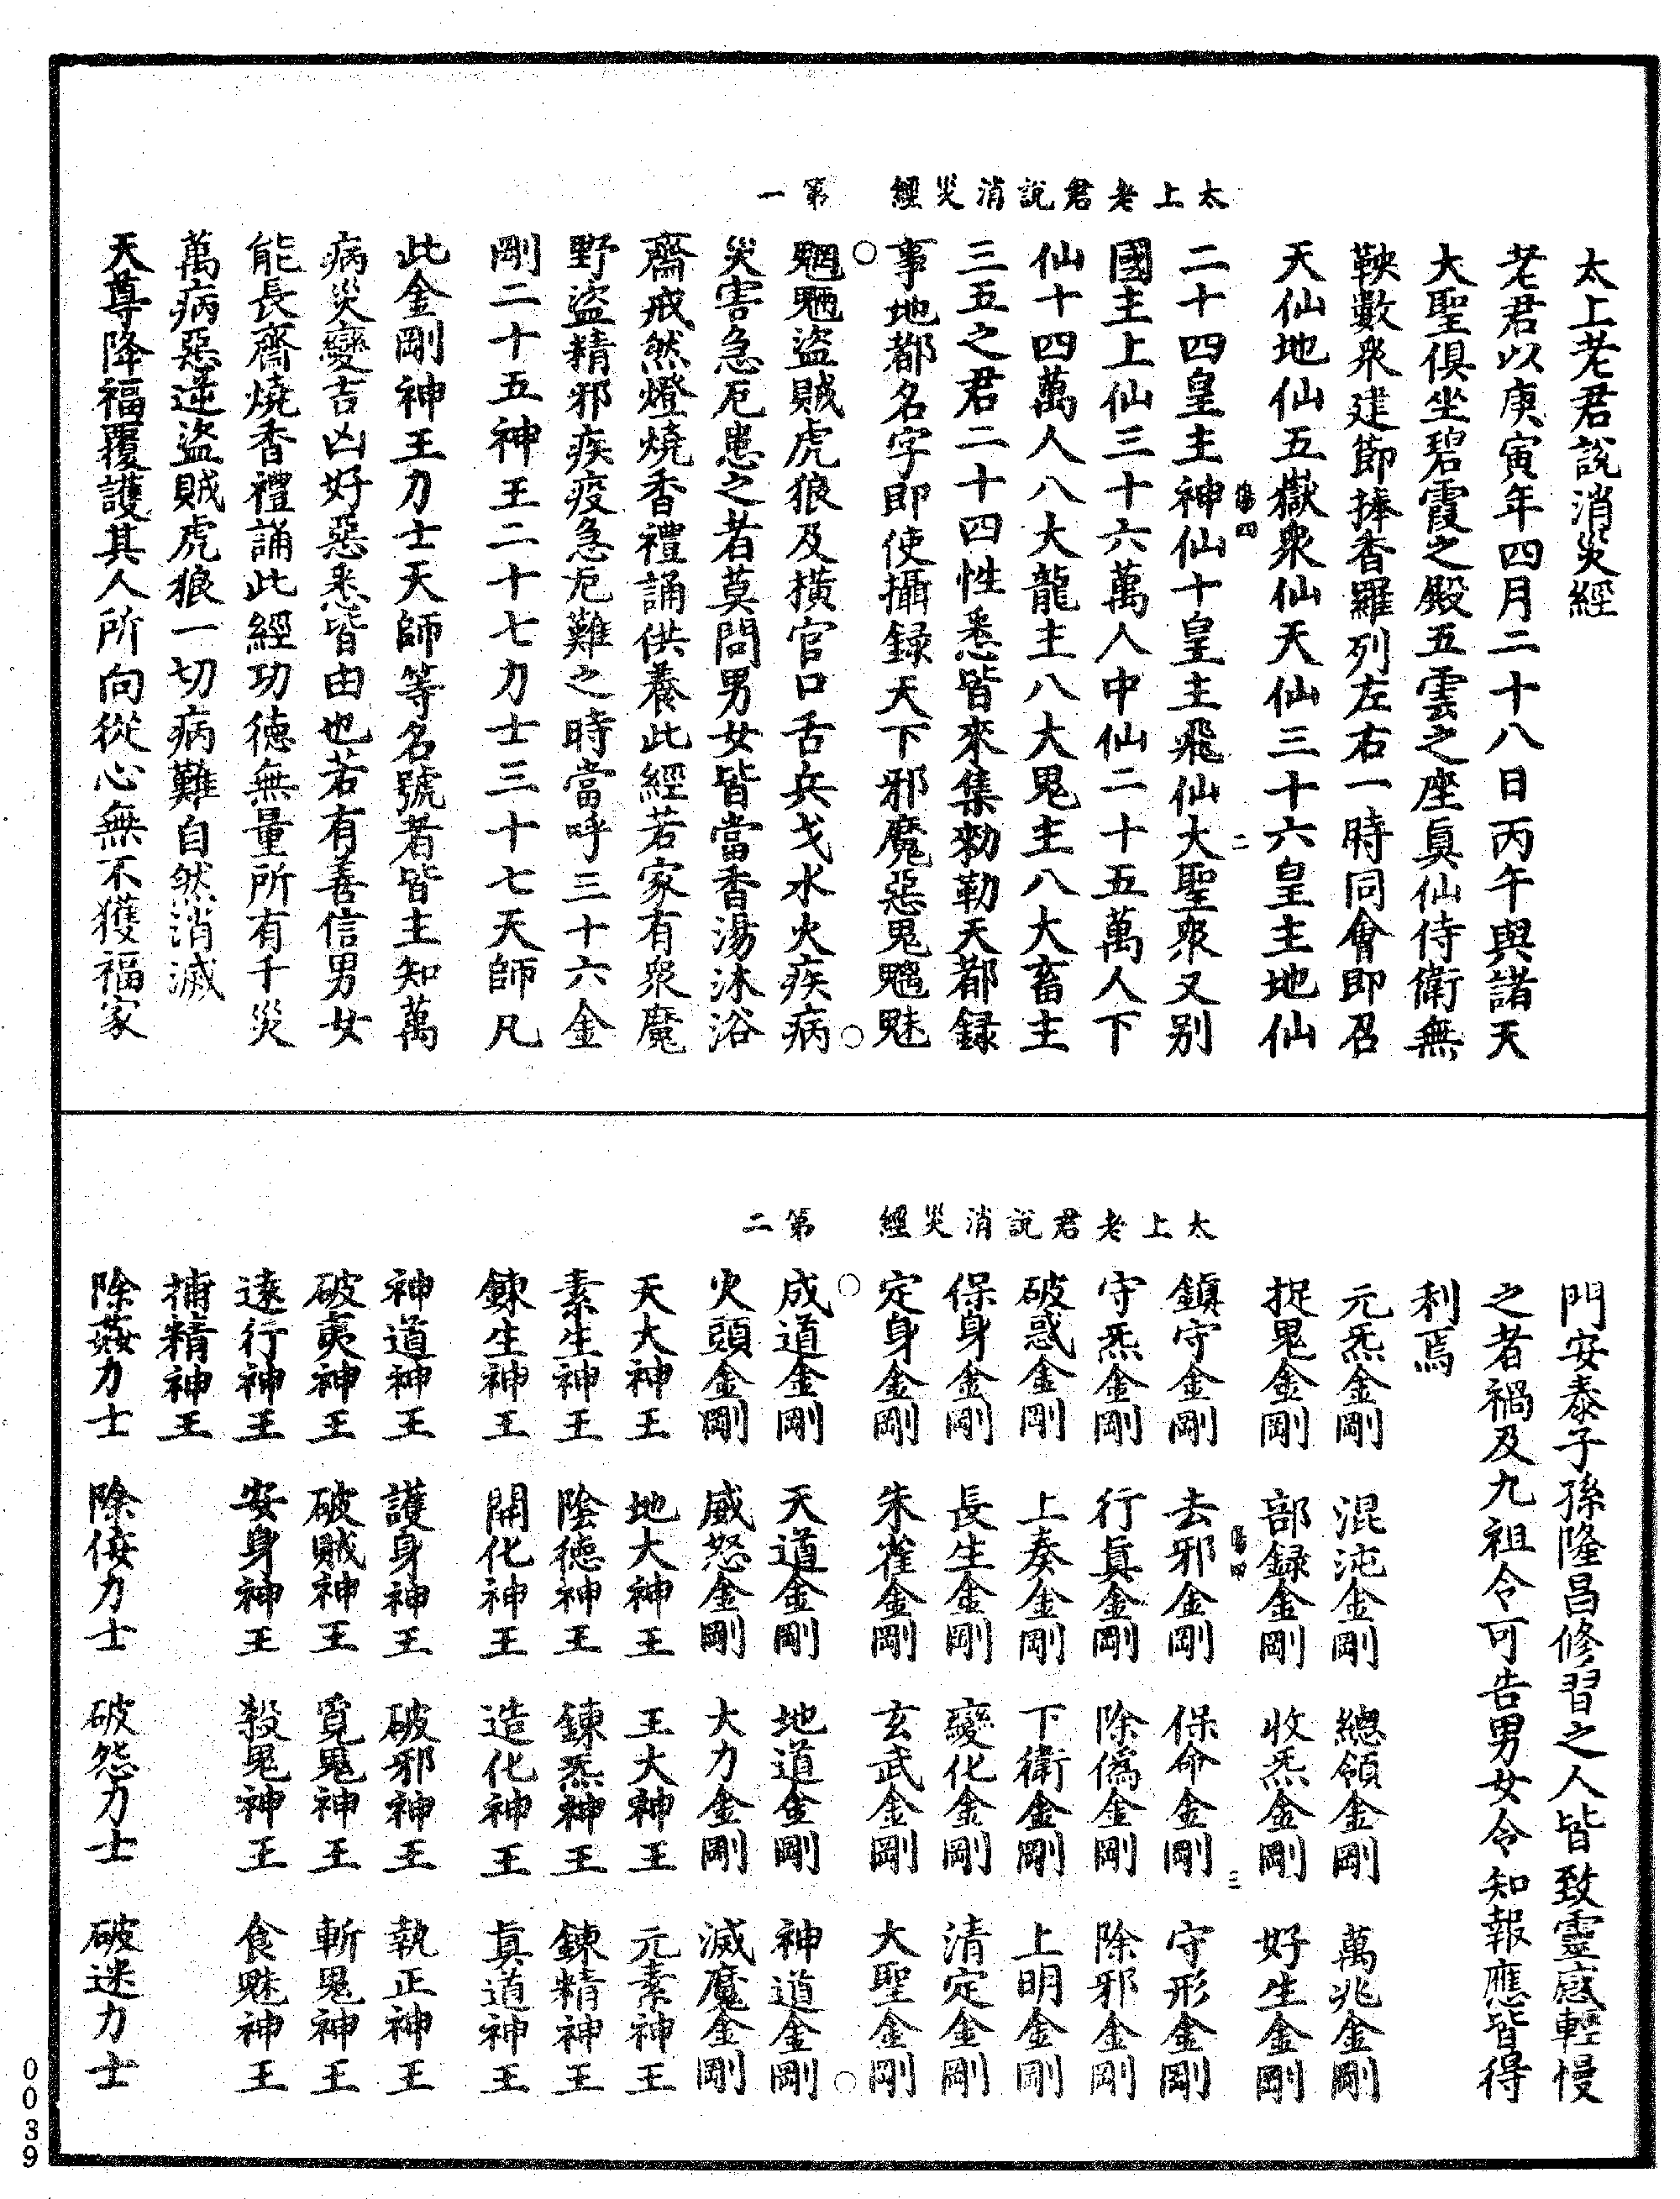 太上老君說消災經
老君以庚寅年四月二十八日丙午與諸天
大聖俱坐碧霞之殿五雲之座真仙侍衛無
鞅數眾建節捧香羅列左右一時同會即召
天仙地仙五嶽眾仙天仙三十六皇主地仙
二十四皇主神仙十皇主飛仙大聖眾又別
國主上仙三十六萬人中仙二十五萬人下
仙十四萬人八大龍主八大鬼主八大畜主
三五之君二十四性悉皆來集勑勒天都錄
事地都名字即使攝錄天下邪魔惡鬼魍魅
魍魎盜賊虎狼及橫官口舌兵戈水火疾病
災害急厄患之者莫問男女皆當香湯沐浴
齋戒然燈燒香禮誦供養此經若家有眾魔
野盜精邪疾疫急厄難之時當呼三十六金
剛二十五神王二十七力士三十七天師凡
此金剛神王力士天師等名號者皆主知萬
病災變吉凶好惡悉皆由也若有善信男女
能長齋燒香禮誦此經功德無量所有千災
萬病惡逆盜賊虎狼一切病難自然消滅
天尊降福覆護其人所向從心無不獲福家
太上老君說消災經 第一
傷四 二
門安泰子孫隆昌修習之人皆致靈感輕慢
之者禍及九祖令可告男女令知報應皆得
利焉
元炁金剛 混沌金剛 總領金剛 萬兆金剛
捉鬼金剛 部錄金剛 收炁金剛 好生金剛
鎮守金剛 去邪金剛 保命金剛 守形金剛
守炁金剛 行真金剛 除偽金剛 除邪金剛
破惑金剛 上奏金剛 下衛金剛 上明金剛
保身金剛 長生金剛 變化金剛 清定金剛
定身金剛 朱雀金剛 玄武金剛 大聖金剛
成道金剛 天道金剛 地道金剛 神道金剛
火頭金剛 威怒金剛 大力金剛 滅魔金剛
天大神王 地大神王 王大神王 元素神王
素生神王 陰德神王 鍊炁神王 鍊精神王
鍊生神王 開化神王 造化神王 真道神王
神道神王 護身神王 破邪神王 執正神王
破夷神王 破賊神王 覓鬼神王 斬鬼神王
遠行神王 安身神王 殺鬼神王 食魅神王
捕精神王
除姦力士 除佞力士 破怨力士 破迷力士
太上老君說消災經 第二
傷四 三
0039